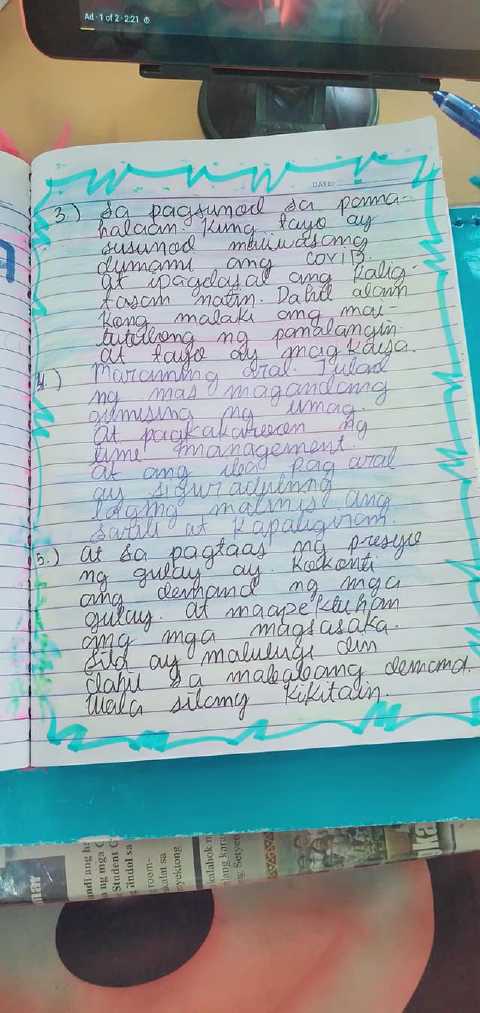 Ad · 1 of 2 · 2:21
DATE:
3.) Sa pagsunod sa pama-
halaan. Kung tayo ay
susunod maiiwasang
dumami ang COVID.
at ipagdasal ang kalig-
tasan natin. Dahil alam
kong malaki ang mai-
tutulong ng panalangin
at tayo ay magkaisa.
4.) Maraming oras. Tulad
ng mas magandang
gumising ng umag.
at pagkakaroon ng
time management.
at ang iba pag aral
ay siguraduhing
laging malinis ang
sarili at kapaligiram
5.) at sa pagtaas ng presyo
ng gulay ay. Kokonti
ang demand ng mga
gulay. at maapektuhan
ang mga magsasaka.
Sila ay malulugi din
dahil sa mababang demand.
Wala silang kikitain.